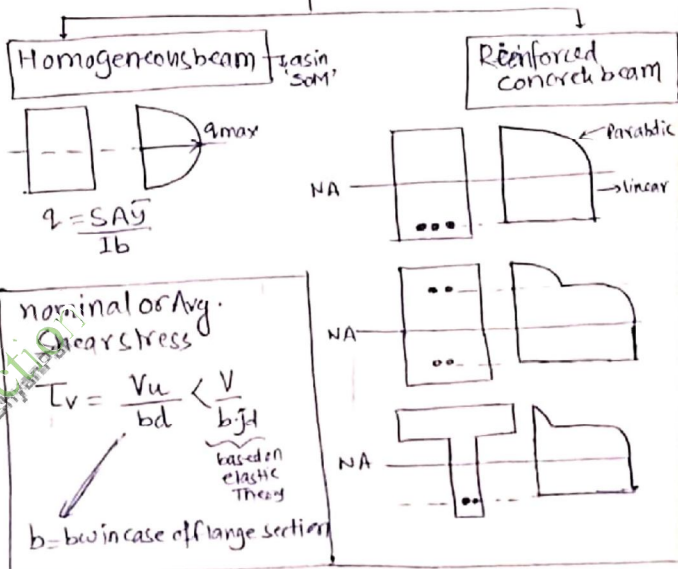 Homogeneous beam → as in
'SOM'
qmax
q = SAȳ
Ib
nominal or Avg.
Shear stress
τv = Vu < V
bd b·jd
based on
elastic
Theory
b = bw in case of flange section
Reinforced
concrete beam
Parabolic
NA
linear
NA
NA